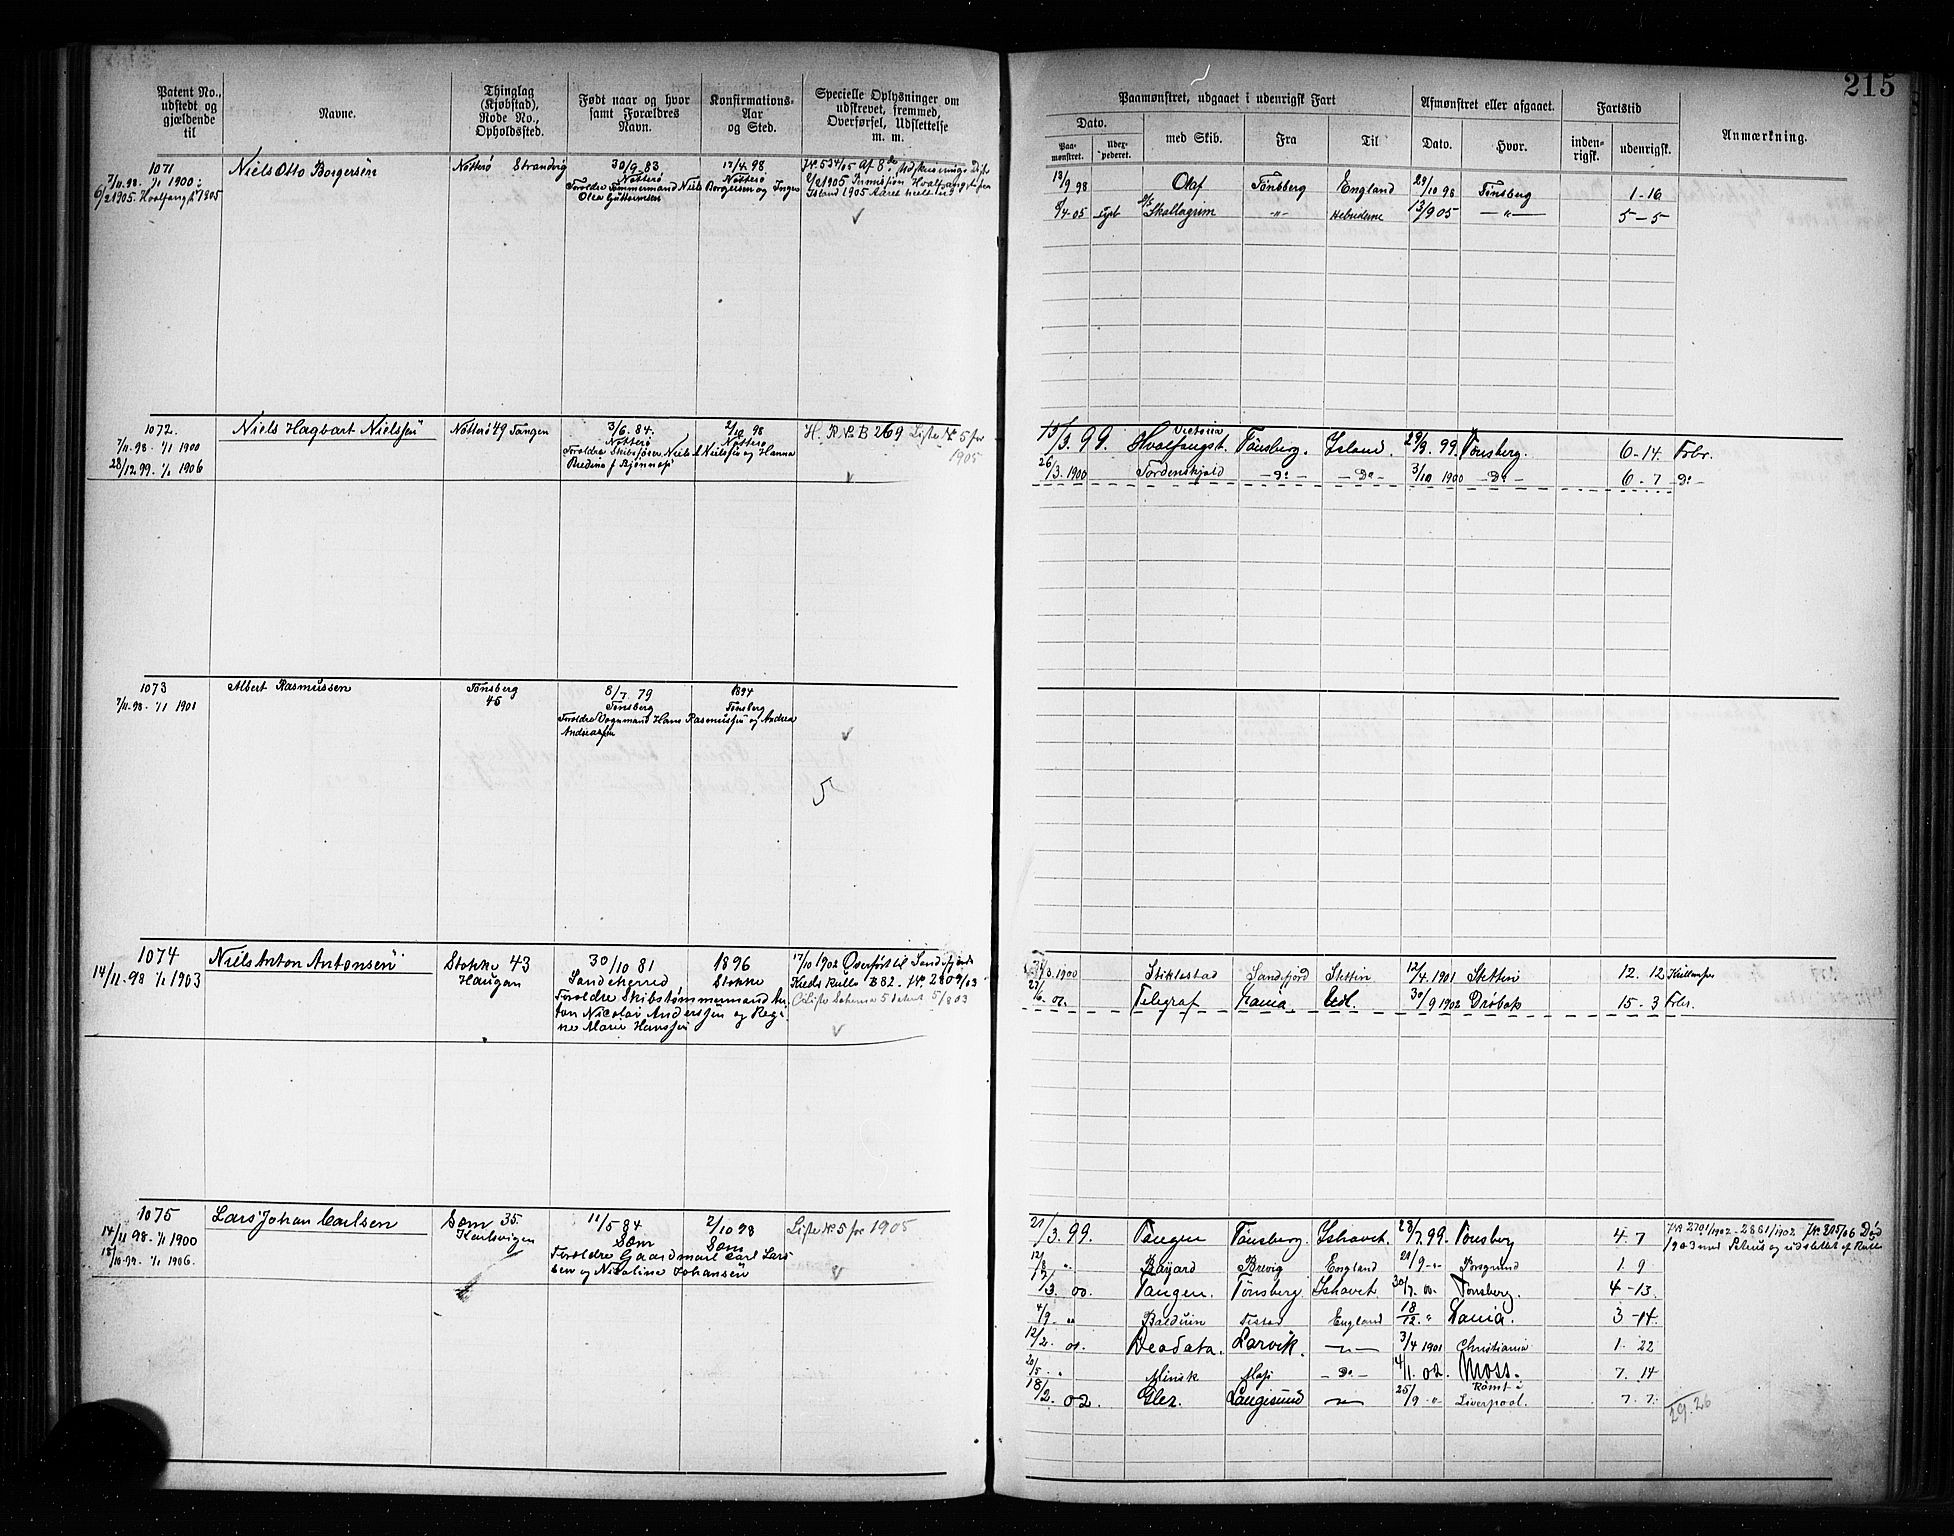 215
Patent No., udstedt og gjældende til
Navne.
Thinglag (Kjøbstad), Rode No., Opholdssted.
Født naar og hvor samt Forældres Navn.
Konfirmations-Aar og Sted.
Specielle Oplysninger om udskrevet, fremmed, Overførsel, Udslettelse m. m.
Paamønstret, udgaaet i udenrigsk Fart
Afmønstret eller afgaaet.
Fartstid
Anmærkning.
Dato.
Paamønstret.
Udexpederet.
med Skib.
Fra
Til
Dato.
Hvor.
indenrigsk.
udenrigsk.
1071
7/11.98. 1/1 1900.
6/2 1905. Hvalfangst 1905
Niels Otto Borgersen
Nøtterø Strandvig
30/9. 83
Nøtterø
Forældre Tømmermand Niels Borgersen og Inger
Olea Guttormsen
17/4. 98
Nøtterø
18/9 98 Olaf Tønsberg England 29/10 98 Tønsberg 1-16
8/4 05 D/S Skallagrim -"- Hebriderne 13/9 05 -"- 5-5
1072.
7/11.98. 1/1 1900
28/12.99. 1/1 1906
Niels Hagbart Nielssen
Nøtterø 49 Tangen
3/6. 84.
Nøtterø
2/10 98
Nøtterø
H. R. No B 269 Liste No 5 for 1905
15/3. 99. Hvalfangst. Victoria Tønsberg. Island. 29/9. 99. Tønsberg. 6-14. Frbr.
26/3. 1900 Tordenskjold -Do- -Do- 3/10 1900 -Do- 6-7 Do-
1073
7/11.98. 1/1 1901
Albert Rasmussen
Tønsberg
45
8/7. 79
Tønsberg
Forældre Vognmand Hans Rasmussen og Andrea
Andreassen
1894
Tønsberg
5
1074
14/11.98 1/1 1903
Niels Anton Antonsen
Stokke 43
Haugan
30/10 81
Sandeherred
Forældre Skibstømmermand An-
ton Nicolai Anderssen og Regi-
ne Marie Hanssen
1896
Stokke
17/10 1902 Overført til Sandefjords
Kreds Rulle B 82. J.No. 2809/03
Stiklestad Sandefjord Stettin 12/4 1901 Stettin 12. 12
Telegraf Edl. 30/9 1902 Drøbak 15-3 Frbr.
1075
14/11 98. 1/1 1900
18/10.99. 1/1 1906.
Lars Johan Carlsen
Sem 35.
Karlsvigen
11/5 84
Sem
Forældre Gaardmand Carl Lars-
sen og Nicoline Johansen
2/10 98
Sem
Liste No 5 for 1905
21/3. 99. Tangen Tønsberg. Ishavet. 28/7. 99. Tønsberg 4. 7
J.No 2701/1902 - 2861/1902 J.No. 205/06 Død
1903 med Peterus og udslettet af Rullen
12/8 " Bayard Brevig England 21/9 -"- Porsgrund 1. 9
17/3. 00. Tangen. Tønsberg. Ishavet 30/7. 00. Tønsberg. 4-13.
4/9. " Balduin England 18/12. " 3-14.
12/2. 01. Deodata. Larvik. -"- 3/4 1901 Christiania 1. 22
20/5. " Minsk Moss -Do- 4/1. 02. Moss. 7. 14
18/2. 02. Glez. Langesund -"- 25/9 -"- Rømt i Liverpool. 7. 7.
29. 26